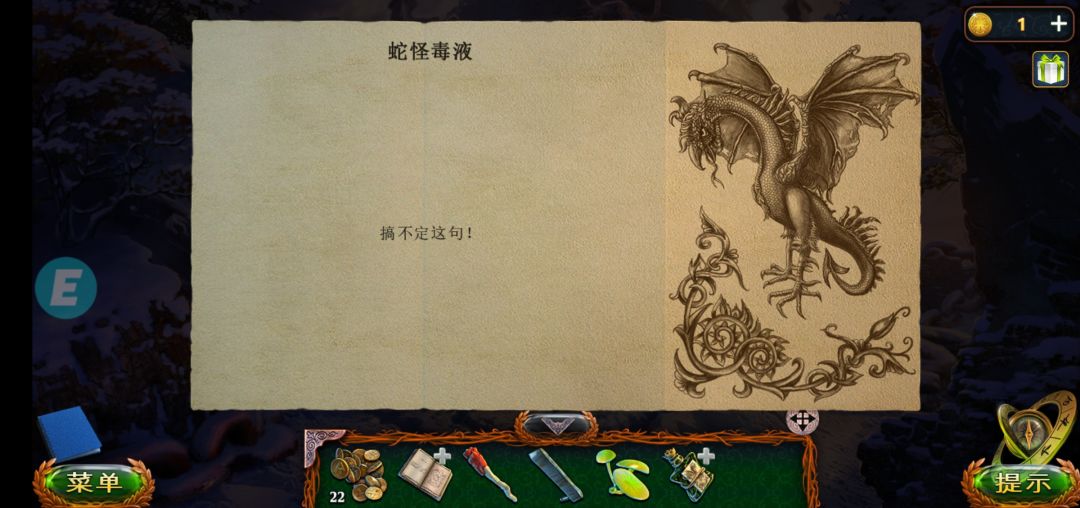 蛇怪毒液
1
搞不定这句！
E
22
菜单
提示